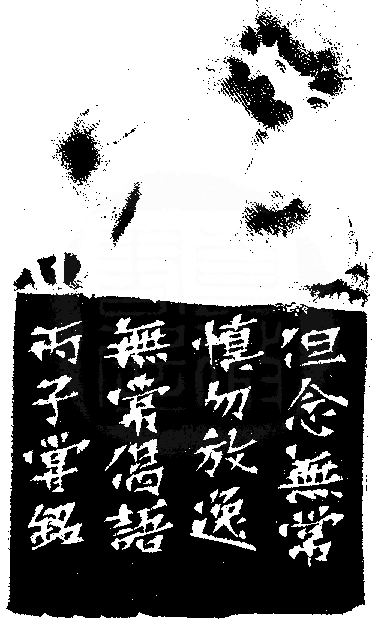 但念無常
慎勿放逸
無常偈語
丙子銘